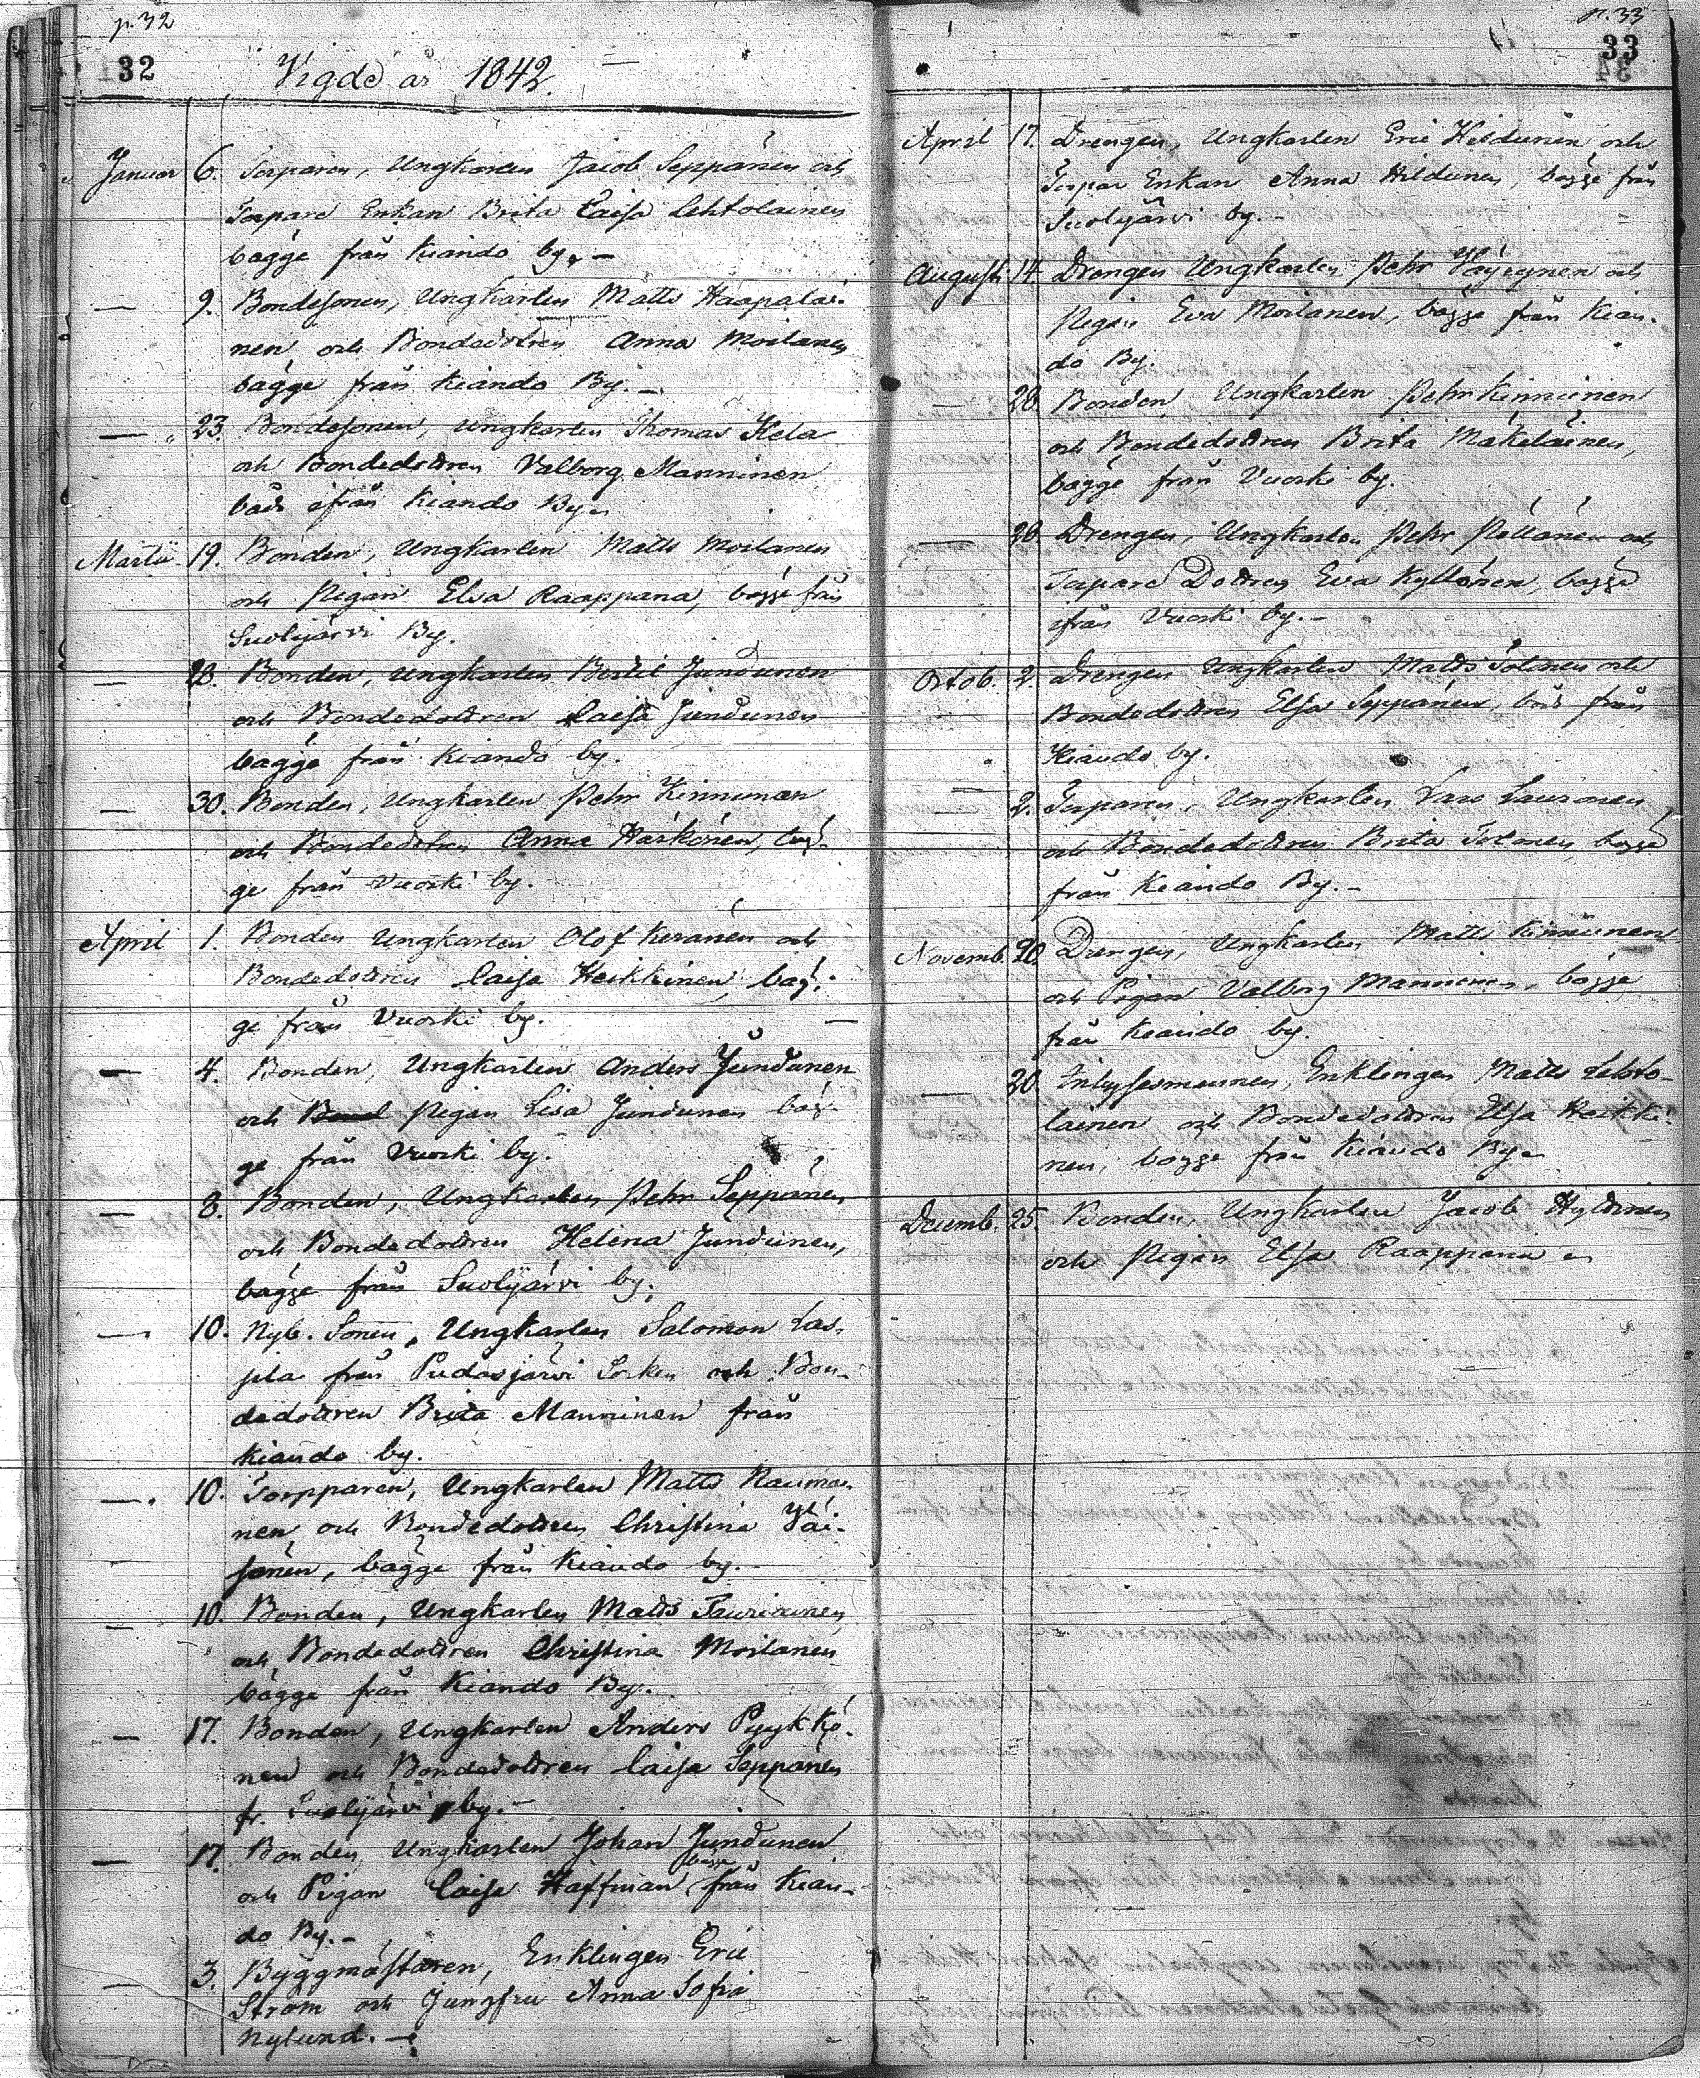 p. 32
32
Vigde år 1842.
Januar 6. Torparen, Ungkarlen Jacob Seppänen och
Torpare Enkan Brita Caisa Lehtolainen
bägge från Kiando by. –
— 9. Bondesonen, Ungkarlen Matts Haapalai-
nen och Bondedotren Anna Moilanen
bägge från Kiando By. –
— 23. Bondesonen, Ungkarlen Thomas Kela
och Bondedottren Valborg Manninen
både ifrån Kiando By.
Martii 19. Bonden, Ungkarlen Matts Moilanen
och Pigan Elsa Raappana, bägge från
Suolijärvi By.
— 28. Bonden, Ungkarlen Bertil Jundunen
och Bondedottren Caisa Jundunen
bägge från Kiando by.
— 30. Bonden, Ungkarlen Pehr Kinnunen
och Bondedotren Anna Härkönen, bäg-
ge från Vuoski by.
April 1. Bonden Ungkarlen Olof Keränen och
Bondedottren Caisa Heikkinen, bäg-
ge från Vuoski by.
— 4. Bonden, Ungkarlen Anders Jundunen
och Pigan Lisa Jundunen bäg-
ge från Vuoski by.
— 8. Bonden, Ungkarlen Pehr Seppänen
och Bondedottren Helena Jundunen,
bägge från Suolijärvi by.
— 10. Nyb. Sonen, Ungkarlen Salomon Las-
sila från Pudasjärvi Socken och Bon-
dedottren Brita Manninen från
Kiando by.
— 10. Torpparen, Ungkarlen Matts Rauma-
nen och Bondedottren Christina Väi-
sänen, bägge från Kiando by. –
— 10. Bonden, Ungkarlen Matts Tauriainen
och Bondedottren Christina Moilanen
bägge från Kiando By.
— 17. Bonden, Ungkarlen Anders Pyykkö-
nen och Bondedottren Caisa Seppänen
fr. Suolijärvi by. –
— 17. Bonden, Ungkarlen Johan Jundunen
och Pigan Caisa Häffman bägge från Kian-
do By. –
— 3. Byggmästaren, Enklingen Eric
Ström och Jungfru Anna Sofia
Nylund. –
p. 33
33
April 17. Drengen, Ungkarlen Eric Hildunen och
Torpar Enkan Anna Hildunen, bägge från
Suolijärvi by. –
Augusti 14. Drengen Ungkarlen Pehr Väyrynen och
Pigan Eva Moilanen, bägge från Kian-
do By.
— 28. Bonden, Ungkarlen Pehr Kinnunen
och Bondedottren Brita Mäkeläinen,
bägge från Vuoski by.
— 28. Drengen, Ungkarlen Pehr Pöllänen och
Torpare Dottren Eva Kyllönen, bägge
ifrån Vuoski by. –
Octob. 2. Drengen Ungkarlen Matts Tolonen och
Bondedottren Elsa Seppänen, båd från
Kiando by.
— 2. Torparen, Ungkarlen Lars Lauronen
och Bondedottren Brita Tolonen, bägge
från Kiando By. –
Novemb. 20. Drengen, Ungkarlen Matts Kinnunen
och Pigan Valborg Manninen, bägge
från Kiando by.
— 20. Inhysesmannen, Enklingen Matts Lehto-
lainen och Bondedottren Elsa Heikki-
nen, bägge från Kiando By.
Decemb. 25. Bonden, Ungkarlen Jacob Hyldinen
och Pigan Elsa Raappana